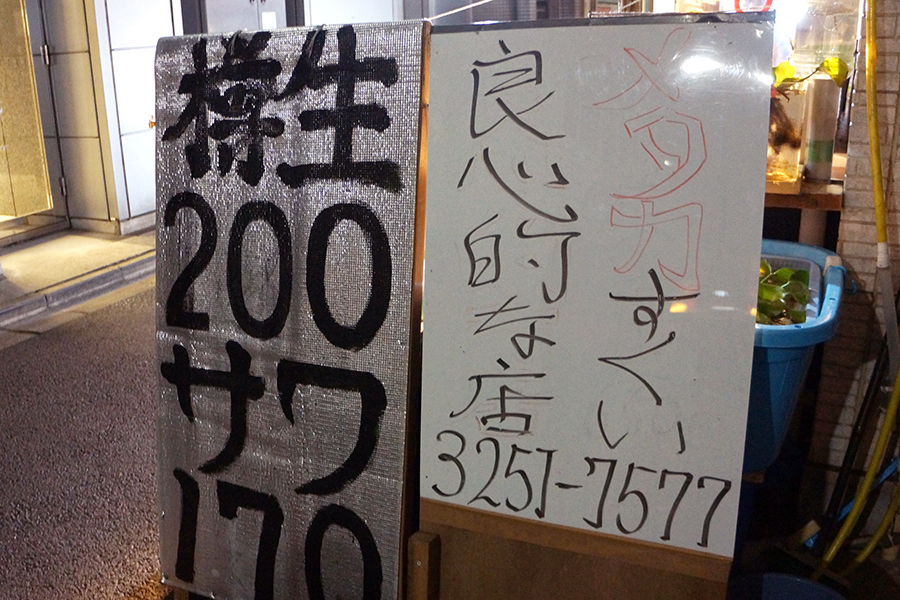 樽生
200
サワ
170
メダカすくい
良心的な店
3251-7577